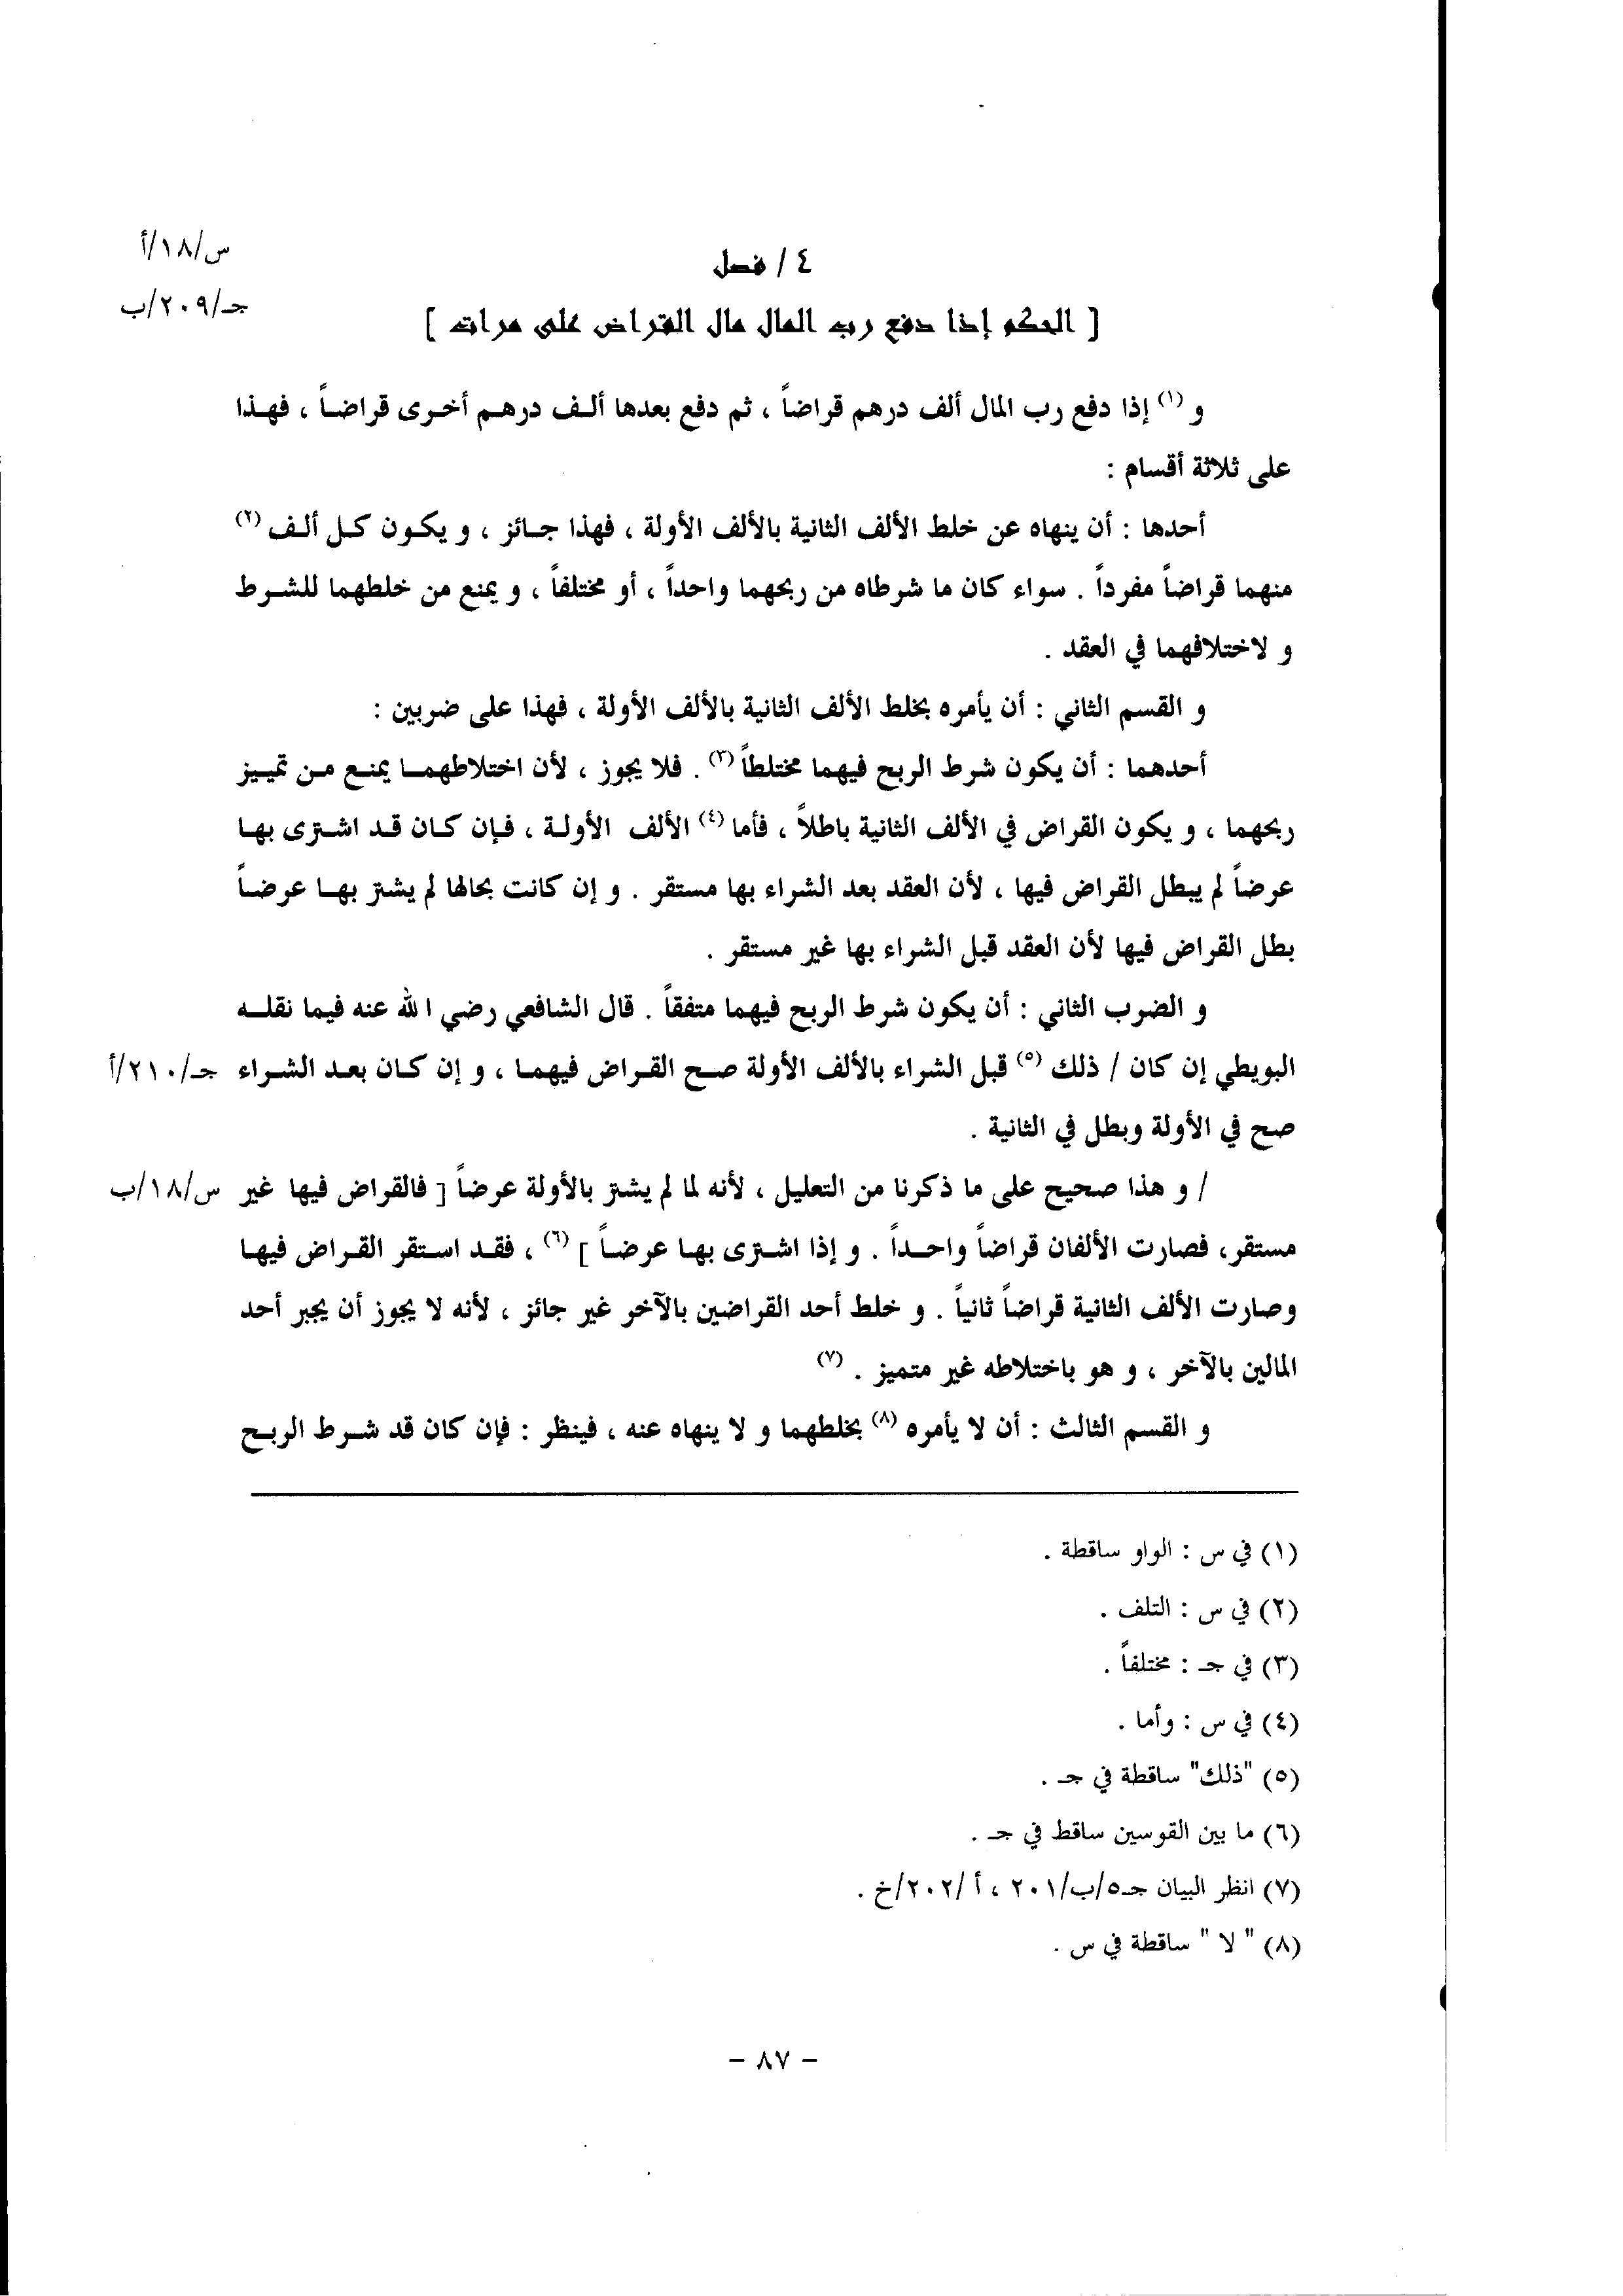 س/١٨/أ
٤ / فصل
جـ/٢٠٩/ب
[ الحكم إذا دفع رب المال مال القراض على مرات ]
و (١) إذا دفع رب المال ألف درهم قراضاً ، ثم دفع بعدها ألـف درهـم أخـرى قراضـاً ، فهـذا
على ثلاثة أقسام :
أحدها : أن ينهاه عن خلط الألف الثانية بالألف الأولة ، فهذا جـائز ، و يكـون كـل ألـف (٢)
منهما قراضاً مفرداً . سواء كان ما شرطاه من ربحهما واحداً ، أو مختلفاً ، و يمنع من خلطهما للشـرط
و لاختلافهما في العقد .
و القسم الثاني : أن يأمره بخلط الألف الثانية بالألف الأولة ، فهذا على ضربين :
أحدهما : أن يكون شرط الربح فيهما مختلطاً (٣) . فلا يجوز ، لأن اختلاطهمـا يمنـع مـن تمييـز
ربحهما ، و يكون القراض في الألف الثانية باطلاً ، فأما (٤) الألف الأولـة ، فـإن كـان قـد اشـترى بهـا
عرضاً لم يبطل القراض فيها ، لأن العقد بعد الشراء بها مستقر . و إن كانت بحالها لم يشتر بهـا عرضـاً
بطل القراض فيها لأن العقد قبل الشراء بها غير مستقر .
و الضرب الثاني : أن يكون شرط الربح فيهما متفقاً . قال الشافعي رضي الله عنه فيما نقلـه
البويطي إن كان / ذلك (٥) قبل الشراء بالألف الأولة صـح القـراض فيهمـا ، و إن كـان بعـد الشـراء جـ/٢١٠/أ
صح في الأولة وبطل في الثانية .
/ و هذا صحيح على ما ذكرنا من التعليل ، لأنه لما لم يشتر بالأولة عرضاً [ فالقراض فيها غير س/١٨/ب
مستقر، فصارت الألفان قراضاً واحـداً . و إذا اشـترى بهـا عرضـاً ] (٦) ، فقـد اسـتقر القـراض فيهـا
وصارت الألف الثانية قراضاً ثانياً . و خلط أحد القراضين بالآخر غير جائز ، لأنه لا يجوز أن يجبر أحد
المالين بالآخر ، و هو باختلاطه غير متميز . (٧)
و القسم الثالث : أن لا يأمره (٨) بخلطهما و لا ينهاه عنه ، فينظر : فإن كان قد شـرط الربـح
(١) في س : الواو ساقطة .
(٢) في س : التلف .
(٣) في جـ : مختلفاً .
(٤) في س : وأما .
(٥) "ذلك" ساقطة في جـ .
(٦) ما بين القوسين ساقط في جـ .
(٧) انظر البيان جـ٥/ب/٢٠١ ، أ /٢٠٢/خ .
(٨) " لا " ساقطة في س .
- ٨٧ -